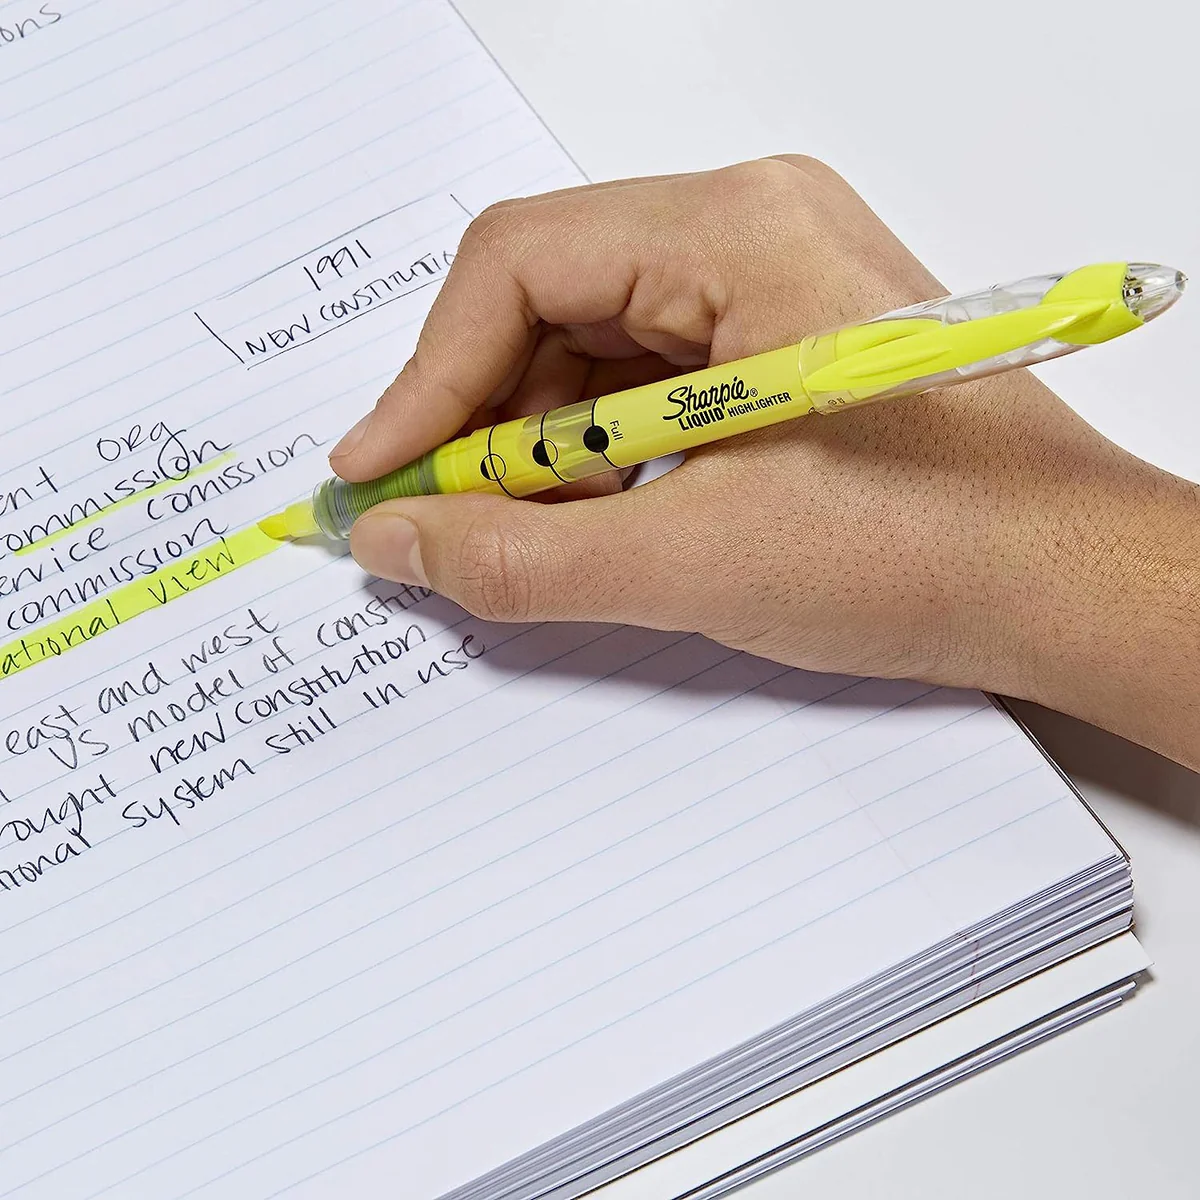 1991
NEW CONSTITUTIO
org
commission
service comission
commission
ational view
east and west
vs model of constitu
ought new constitution
ional system still in use
Sharpie®
LIQUID HIGHLIGHTER
Full